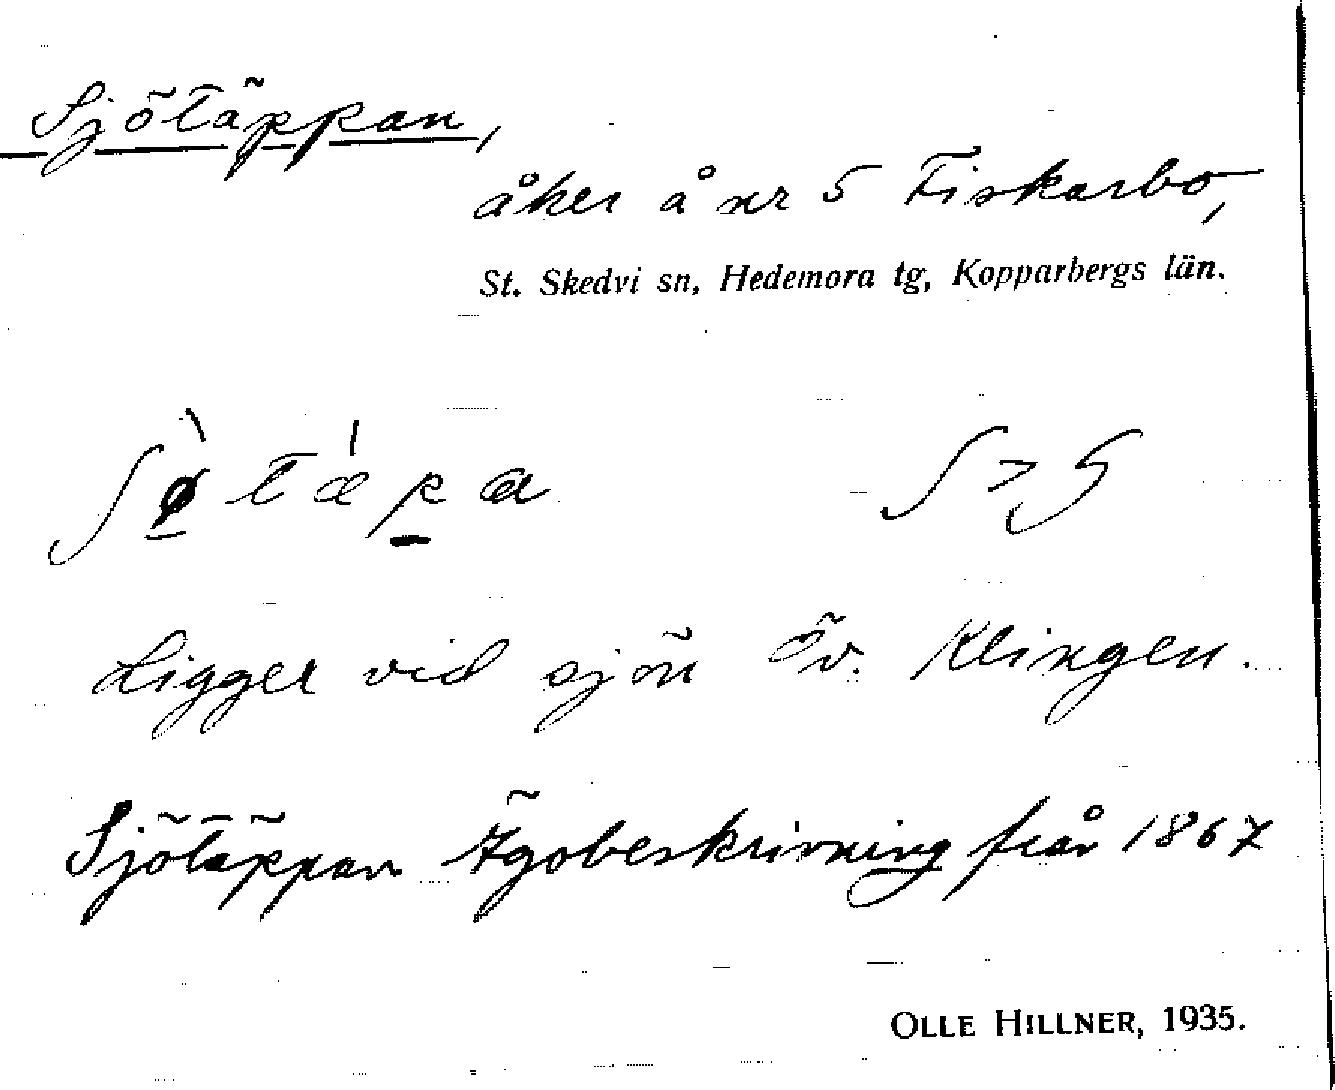 Sjötäppan,
åker å nr 5 Fiskarbo,
St. Skedvi sn, Hedemora tg, Kopparbergs län.
Ligger vid sjön Öv. Klingen.
Sjötäppan Ägobeskrivning från 1867
OLLE HILLNER, 1935.